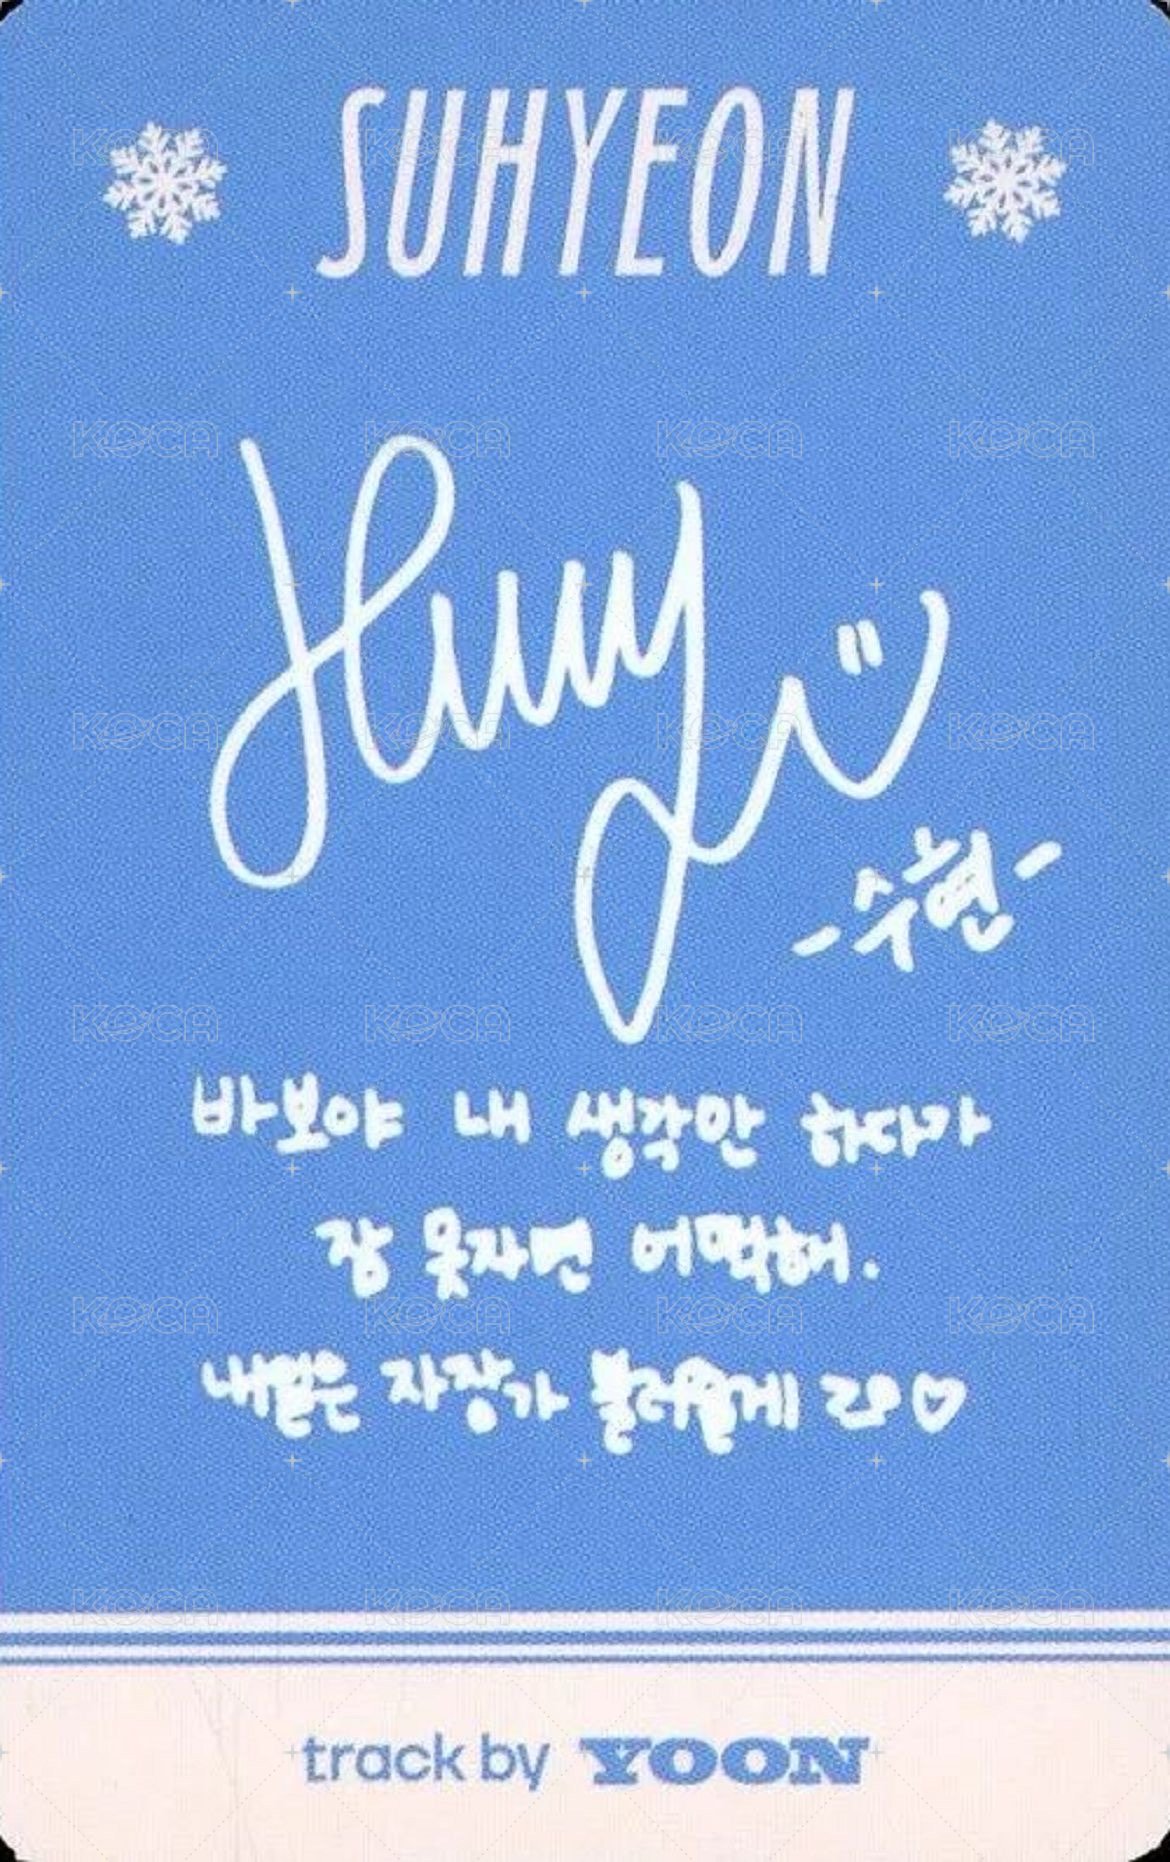 SUHYEON
-수현-
바보야 내 생각안 하다가
잠 못자면 어떡해.
내일은 자장가 불러줄게
track by YOON